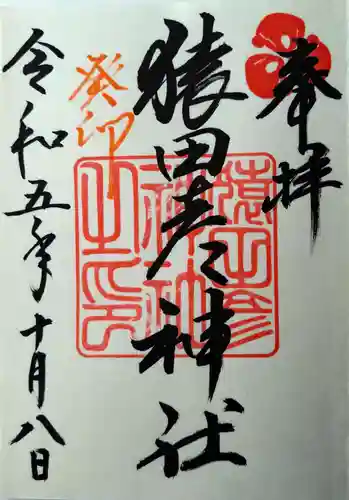 奉拝
猿田彦神社
癸卯
令和五年十月八日
猿田彦
神社
之印